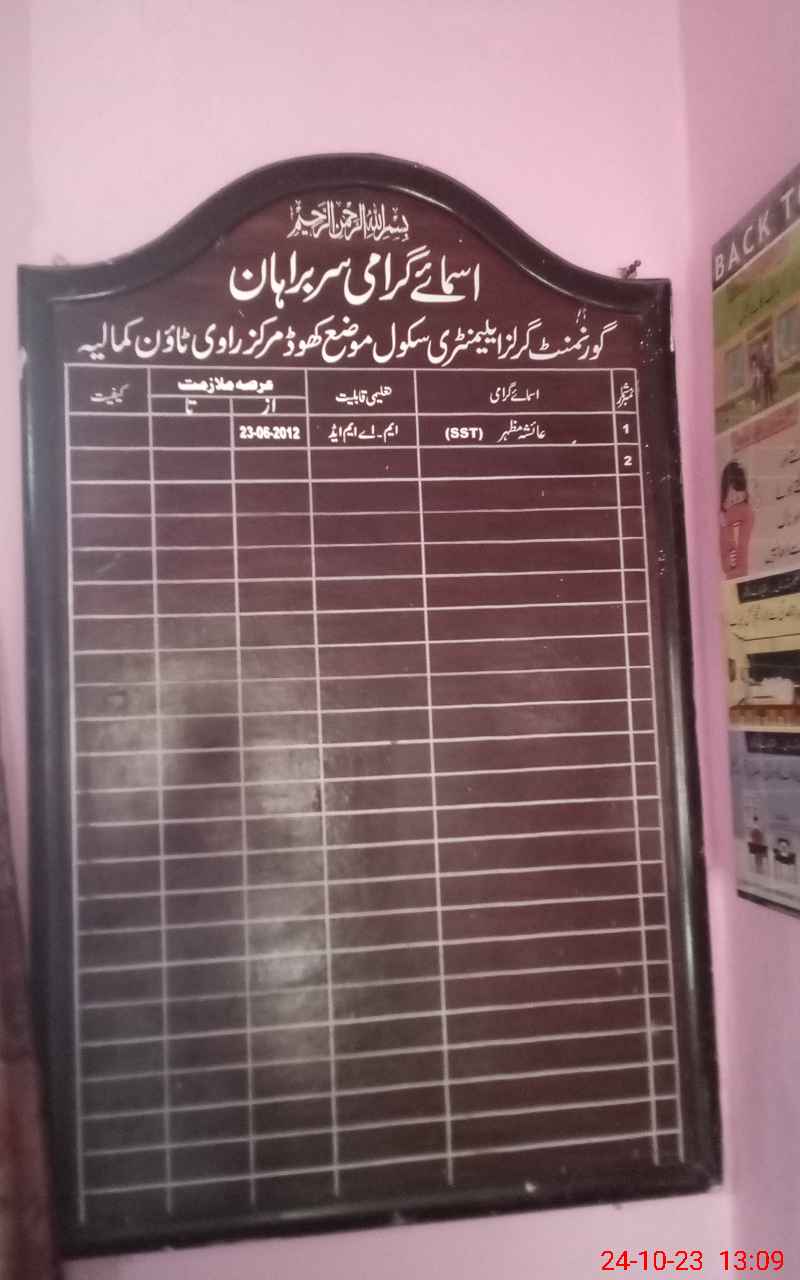 بسم اللہ الرحمن الرحیم
اسمائے گرامی سربراہان
گورنمنٹ گرلز ایلیمنٹری سکول موضع کھوڈ مرکز راوی ٹاؤن کمالیہ
نمبر شمار اسمائے گرامی تعلیمی قابلیت عرصہ ملازمت کیفیت
از تا
1 عائشہ مظہر (SST) ایم۔اے ایم ایڈ 23-06-2012
2
BACK TO
24-10-23 13:09